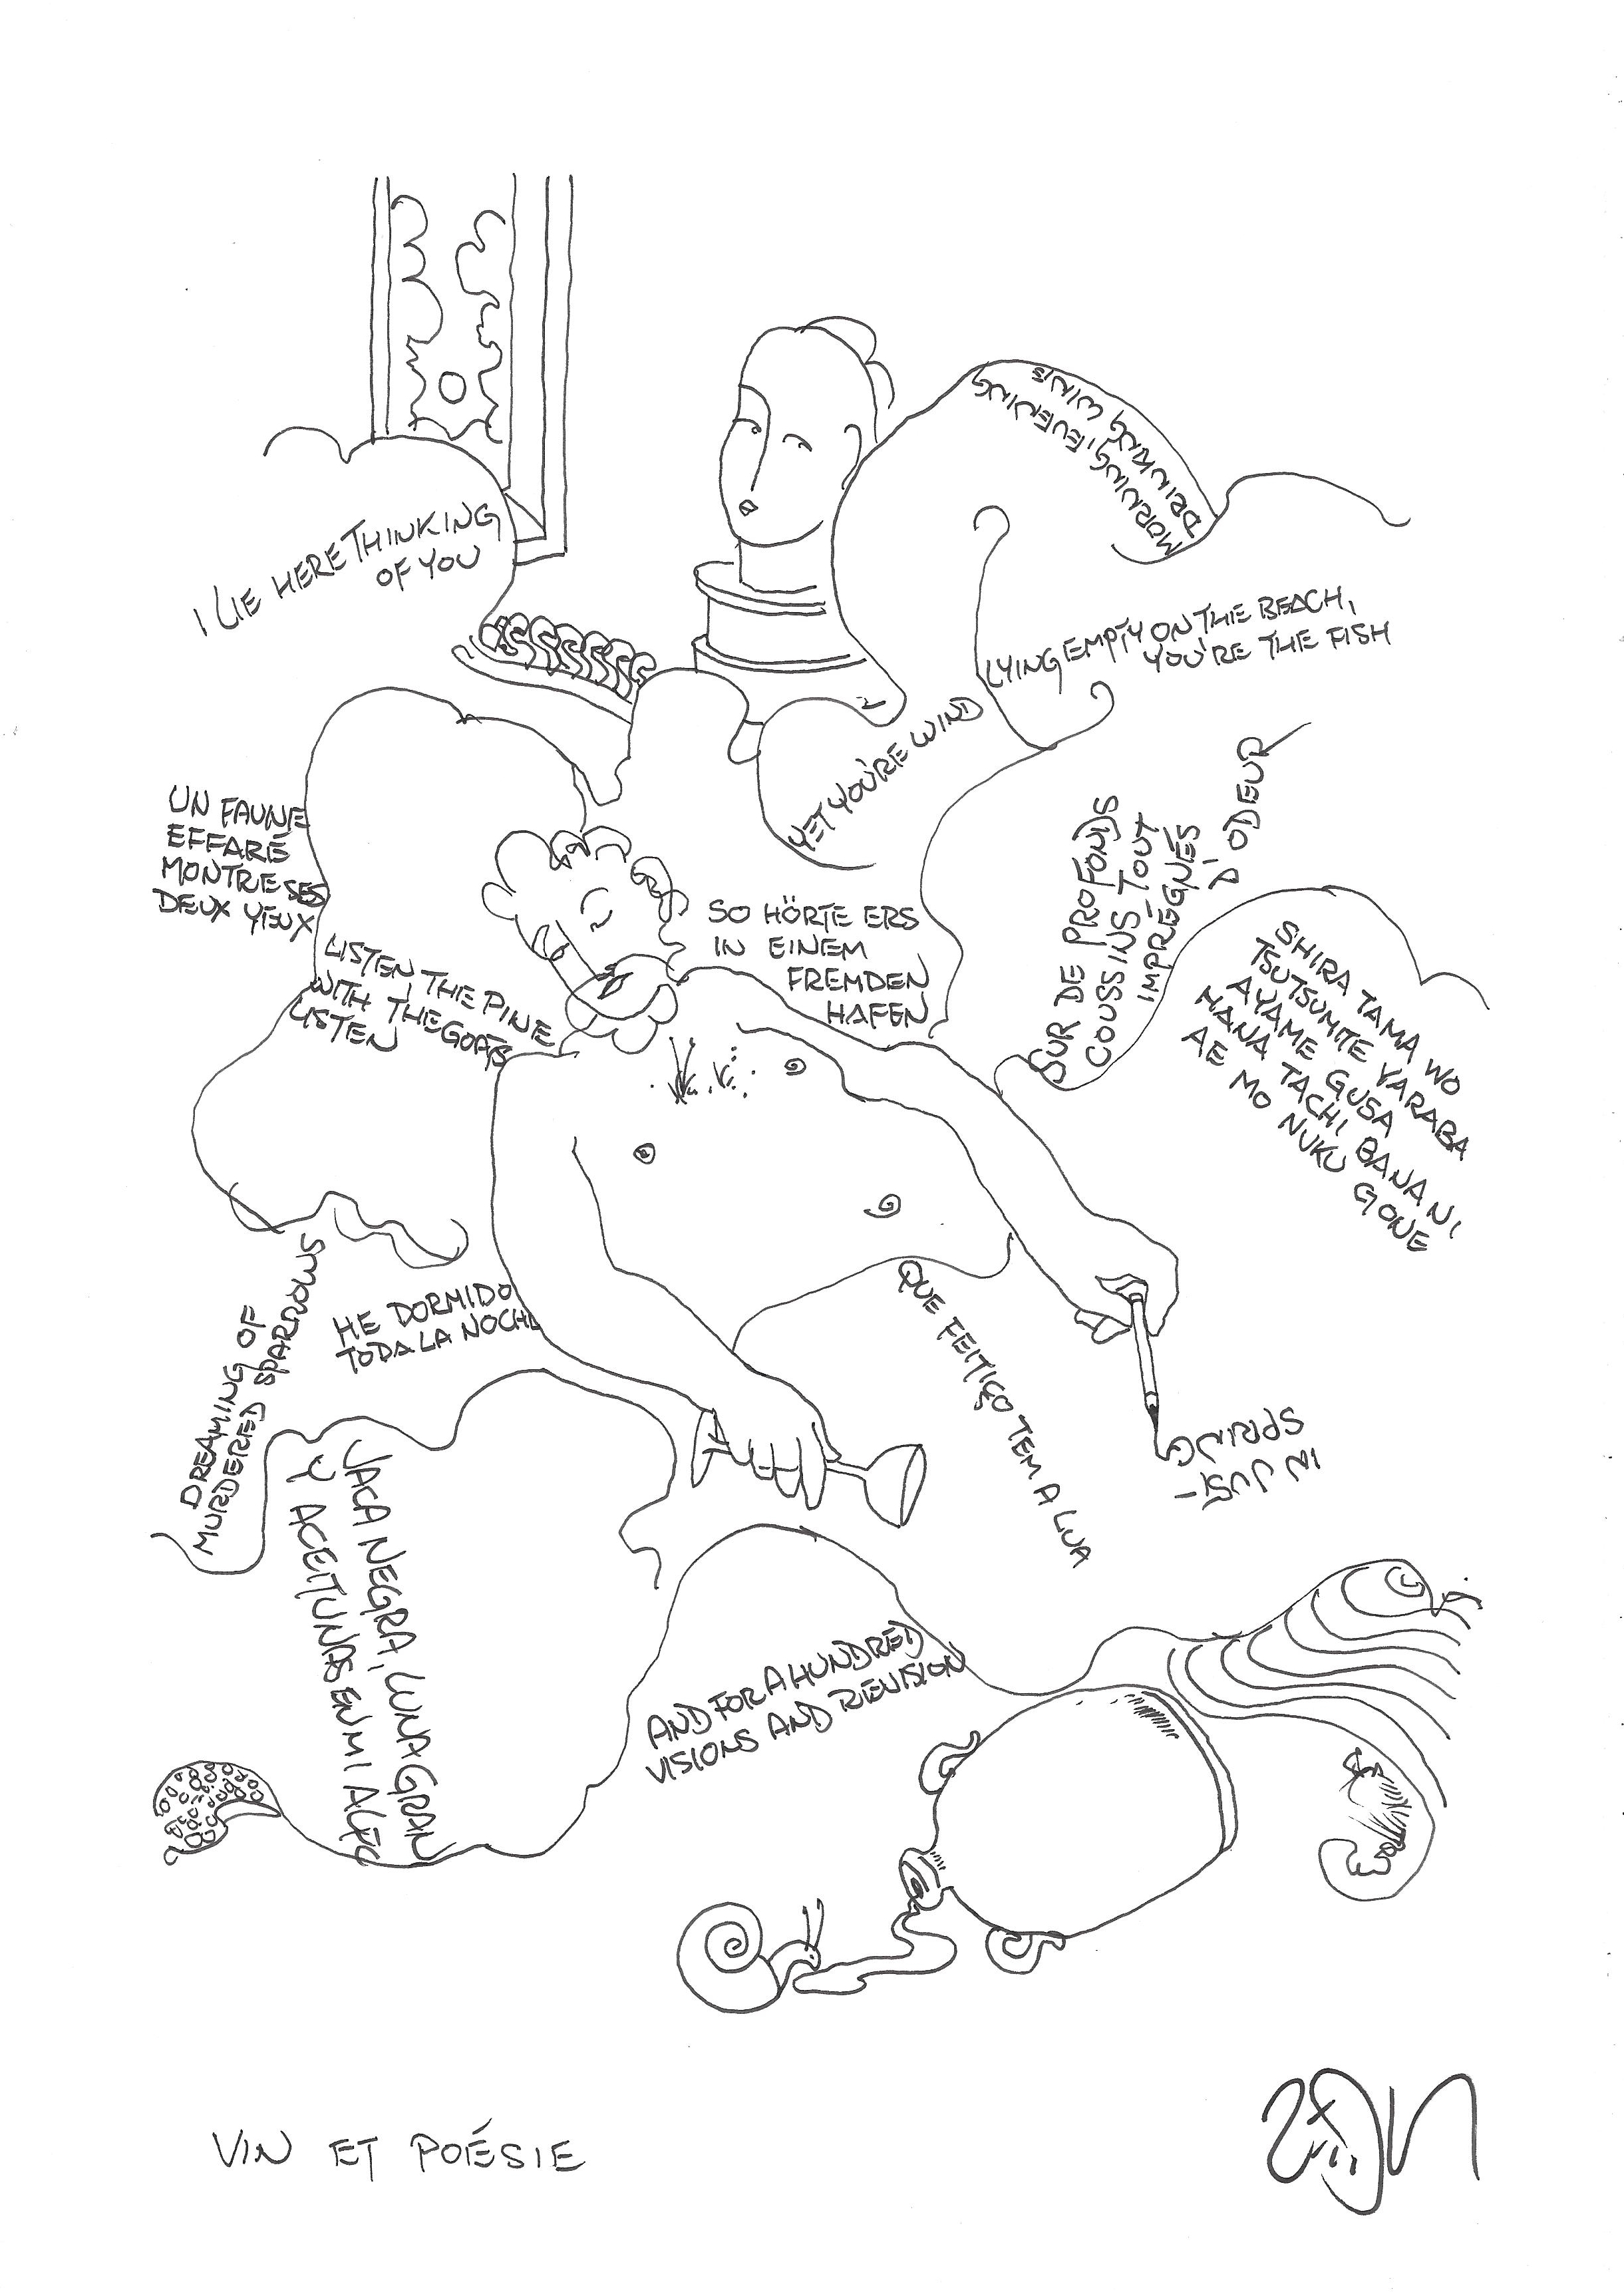 MORNING, EVENING
DRINKING WINE
I LIE HERE THINKING
OF YOU
LYING EMPTY ON THE BEACH,
YOU'RE THE FISH
YET YOU'RE WIND
UN FAUNE
EFFARÉ
MONTRE SES
DEUX YEUX
LISTEN, THE PINE
WITH THE GOATS
LISTEN
SO HÖRTE ERS
IN EINEM
FREMDEN
HAFEN
SUR DE PROFONDS
COUSSINS TOUT
IMPRÉGNÉS
D'ODEUR
SHIRA TAMA WO
TSUTSUMITE VARABA
AYAME GUSA
HANA TACHI BANA NI
AE MO NUKU GONE
DREAMING OF
MURDERED SPARROWS
HE DORMIDO
TODA LA NOCHE
QUE FEITIÇO TEM A LUA
IN JUST-
SPRING
JACA NEGRA, LUNA GRAN
Y ACEITUNAS EN MI
AND FOR A HUNDRED
VISIONS AND REVISION
VIN ET POÉSIE